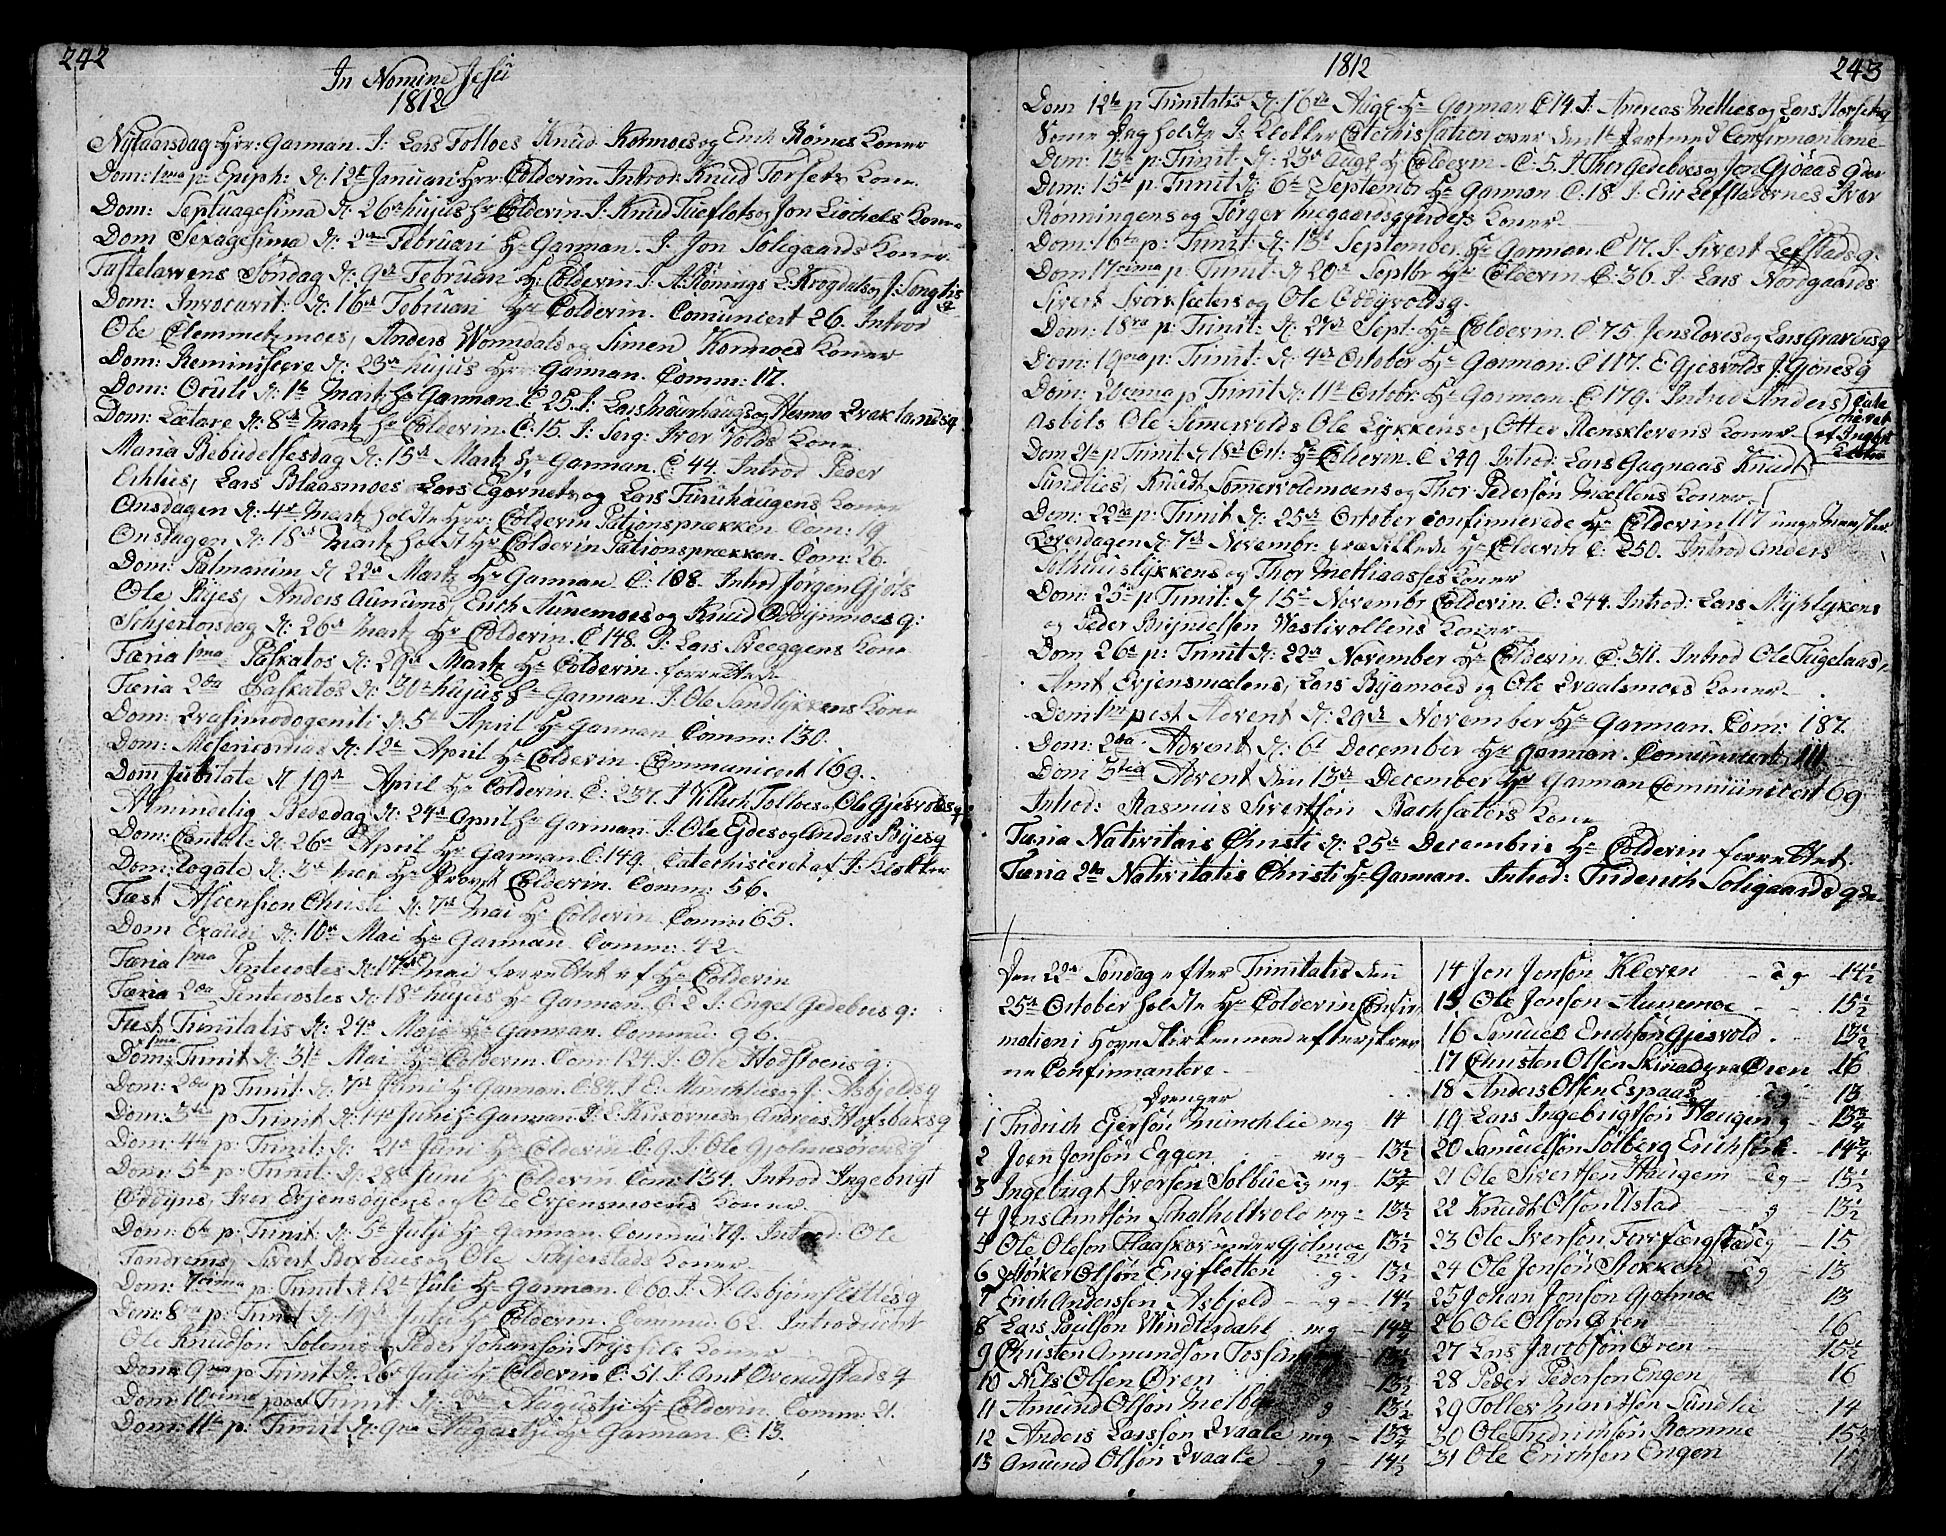 242
In Nomine Jesu
1812
Nytaarsdag Hrr: Garman. I: Lars Folloes Knud Kormoes og Erich Rømes Koner
Dom: 1ma p: Epiph: d: 12te Januari Hrr: Colderin. Introd: Knud Torsets Kone
Dom: Septuagesima d: 26de hujus Hr Colderin. I: Knud og Jon Kone
Dom Sexagesima d: 2den Februari Hr Garman. I: Jon Solegaards Kone.
Fastelavens Søndag d: 9de Februari Hr Colderin. I: A: Rønnings L: Krogdals og J:
Dom: Invocavit: d: 16de Februari Hr Colderin. Comunicert 26. Introd
Ole Clemmetzmoes, Anders Wormdals og Simen Kormoes Koner
Dom: Reminiscere d: 23de hujus Hrr Garman. Comm: 17.
Dom: Oculi d: 1te Mart: Hr Garman. C 25. I: Lars og q
Dom: Lætare d: 8de Martz Hr Colderin. C: 15. I: Serg: Iver Volds Kone
Maria Bebudelsesdag d: 15de Martz Hr Garman. C: 44. Introd Peder
Echlies, Lars Blaasmoes Lars Egørnets og Lars Furuhaugens Koner
Onsdagen d: 4de Martz holdte Hrr: Colderin Pationsprækken Com: 19
Onsdagen d: 18de Martz holdt Hr Colderin Pationsprækken. Com: 26.
Dom: Palmarum d 22de Martz Hr Garman. C: 108. Introd Jørgen Gjøls
Ole Byes, Anders Aunums, Erich Aunemoes og Knud Oddynmoes q:
Schjertorsdag d: 26de Martz Hr Colderin. C 148. I: Lars Kone
Færia 1ma Paskatos d: 29de Martz Hr Colderin forrettede
Færia 2da Paskatos d: 30te hujus Hr Garman. I: Ole Sandlykkens Kone
Dom: Qvasimodogeniti d: 5te April Hr Garman Comm: 130.
Dom: Mesericordias d: 12te April Hr Colderin. Communicert 169.
Dom Jubilate d 19de April Hr Colderin. C: 237. I Folloes Ole Gjesvolds q
Almindelig Bededag d: 24de April Hr Garman. I: Ole Eides og Anders Byes q
Dom: Cantate d: 26de April Hr Garman. C: 149. Catechisteret af J: Klokker
Dom: Rogate d: 3de Mai Hr Provst Colderin. Comm: 56.
Fæst Ascension Christi d: 7de Mai Hr Colderin. Comm: 65.
Dom Exaudi d: 10de Mai Hr Garman. Comm: 42.
Færia 1ma Pentecostes d: 17de Mai forrettet af Hr Colderin
Færia 2da Pentecostes d: 18de hujus Hr Garman. C: 2 I: Engel Gedeboes q:
Fæst Trinitatis d: 24de Mai Hr Garman. Commu: 96.
Dom: 1ma Trinit d: 31te Mai Hr Colderin. Com: 124. I: Ole Hodstoens q:
Dom: 2da p Trinit. d: 7de Juni Hr Garman. C: 84. I E: og J: Asbjelds q
Dom: 3tia p Trinit d: 14de Juni Hr Garman. I: L: Kusvornes og Andreas Hofsbaks q
Dom: 4ta p: Trinit: d: 21de Juni Hr Colderin C: 9. I: Ole Gjolmesørens q
Dom: 5te p: Trinit: d: 28de Juni Hr Colderin Com: 134. Introd Ingebrigt
Oddyns, Iver Erjensøyens og Ole Erjensmoens Koner.
Dom: 6te p: Trinit: d: 5te Julji Hr Garman. Commu: 79. Introd: Ole
Fandrems, Sivert Bøxbues og Ole Schjerstads Koner
Dom: 7cima p: Trinit d 12te Juli Hr Garman. C 60. I: A: Asbjørnslettes q
Dom: 8va p: Trinit d: 19de Juli Hr Colderin. Commu: 62. Introducert
Ole Knudsøn Solems og Peder Johansøn Frysets Koner
Dom: 9na p: Trinit d: 26de Julji Hr Colderin C: 51. I: Amt Ovendstads q
Dom: 10cima post Trinit: d: 2den Augustji Hr Colderin. Comm: 21.
Dom: 11te p: Trinit d: 9na Augustji Hr Garman. C: 13.
1812
243
Dom 12te p Trinitatis d: 16de Aug: Hr Garman C 14. I: Andreas Melhies og Lars q
Same Dag holdte J: Klokker Catechissation over den 1te Part med Confirmanterne
Dom: 13te p: Trinit: d: 23de Aug: Hr Colderin. C: 5. I Thor Gedeboes og Jon Gjøaas q
Dom: 15te p: Trinit d: 6te Septembr Hr Garman. C: 18. I: Eric Lefstadernes Iver
Rønningens og Tørger Megaardsgjerdes Koner
Dom: 16te p: Trinit: d: 13de September Hr Garman. C 17. I: Sivert Lefstads q:
Dom: 17cima p: Trinit: d 20de Septbr Hr Colderin. C: 36. I: Lars Nordgaards
Sivert Svorksæters og Ole Oddyvolds q.
Dom: 18va p: Trinit: d: 27de Sept: Hr Colderin. C 75 Jens og Lars Gravens q
Dom: 19na p: Trinit: d: 4de October Hr Garman. C 117. E Gjesvolds J. Gjønes q
Dom: 20cima p Trinit d: 11te Octobr: Hr Garman. C 179. Introd Anders
Asbøls Ole Somervolds Ole Lykkens, Otter Rensklevens Koner
Dom 21te p Trinit d 18de Oct: Hr Colderin. C 249. Introd: Lars Gagnaas Knud
Sundlies, Knudt Somervoldmoens og Thor Pedersøn Mællens Koner.
Dom: 22de p: Trinit d: 25de October confirmerede Hr Colderin 117 unge Mennesker
Løverdagen d: 7de Novembr: prædikede Hr Colderin C: 250. Introd Anders
Solhuuslykkens og Thor Methiaasses Koner
Dom: 25te p Trinit: d: 15de Novembr Colderin. C: 244. Introd: Lars Myhlykens
og Peder Brynielsen Wastivollens Koner
Dom 26te p: Trinit d: 22de November Hr Colderin C: 311. Introd Ole Fugelaas,
Amt Erjensmælens, Lars Byamoes og Ole Qvaalsmoes Koner
Dom 1ma post Advent d: 29de November Hr Garman. Com: 187.
Dom: 2da Advent d: 6te December Hr Garman. Comunicert 111.
Dom 3tia Advent den 13de December Hr Garman Communicert 69.
Introd: Rasmus Sivertsøn Bachsæters Kone
Færia Nativitatis Christi d: 25de Decembris Hr Colderin forrettet.
Færia 2da Nativitatis Christi Hr Garman. Introd: Friderich Soligaards q
Den 22de Søndag efter Trinitatis den
25de October holdte Hr Colderin Confir
mation i Hovedkirken med efterskrev
ne Confirmantere
Drenger
1 Fridrich Ejersøn Munchlie mg 14
2 Joen Jonsøn Eggen mg 13½
3 Ingebrigt Iversøn Solbue g mg 13¾
4 Jens Amtsøn Schalholtvold mg 13½
5 Ole Oleson Flaaskar under Gjølmoe mg 13½
6 Størker Olsøn Engsletten g 13½
7 Erich Andersen Asbjeld g 14½
8 Lars Paulsøn Windlesdahl mg 14¾
9 Christen Amundsøn 13½
10 Nils Olsen Øren 13½
11 Amund Olsøn Melbye g 13½
12 Anders Larssøn Qvaale mg 13¾
13 Amund Olsøn Qvaale g 14½
14 Jon Jonsøn Kleven g 14½
15 Ole Jonsøn Aunemoe 15½
16 Samuel Erichsøn Gjesvold 13½
17 Christen Olsen Øren 16
18 Anders Olsen Espaas g 13
19 Lars Ingebrigtsøn Haugen g 13¾
20 Samuelsøn Solberg Erichson 14¾
21 Ole Sivertsen Haugen g 15½
22 Knudt Olson Ustad g 13½
23 Ole Iversøn g 15
24 Ole Jonsøn Stokken g 13
25 Johan Jonsøn Gjolmoe 13
26 Ole Olsøn Øren 16
27 Lars Jacobsøn Øren 15½
28 Peder Pedersøn Engen 16
29 Follev Sundlie 14
30 Ole Fridrichsøn Romme 15
31 Ole Erichsøn Engen